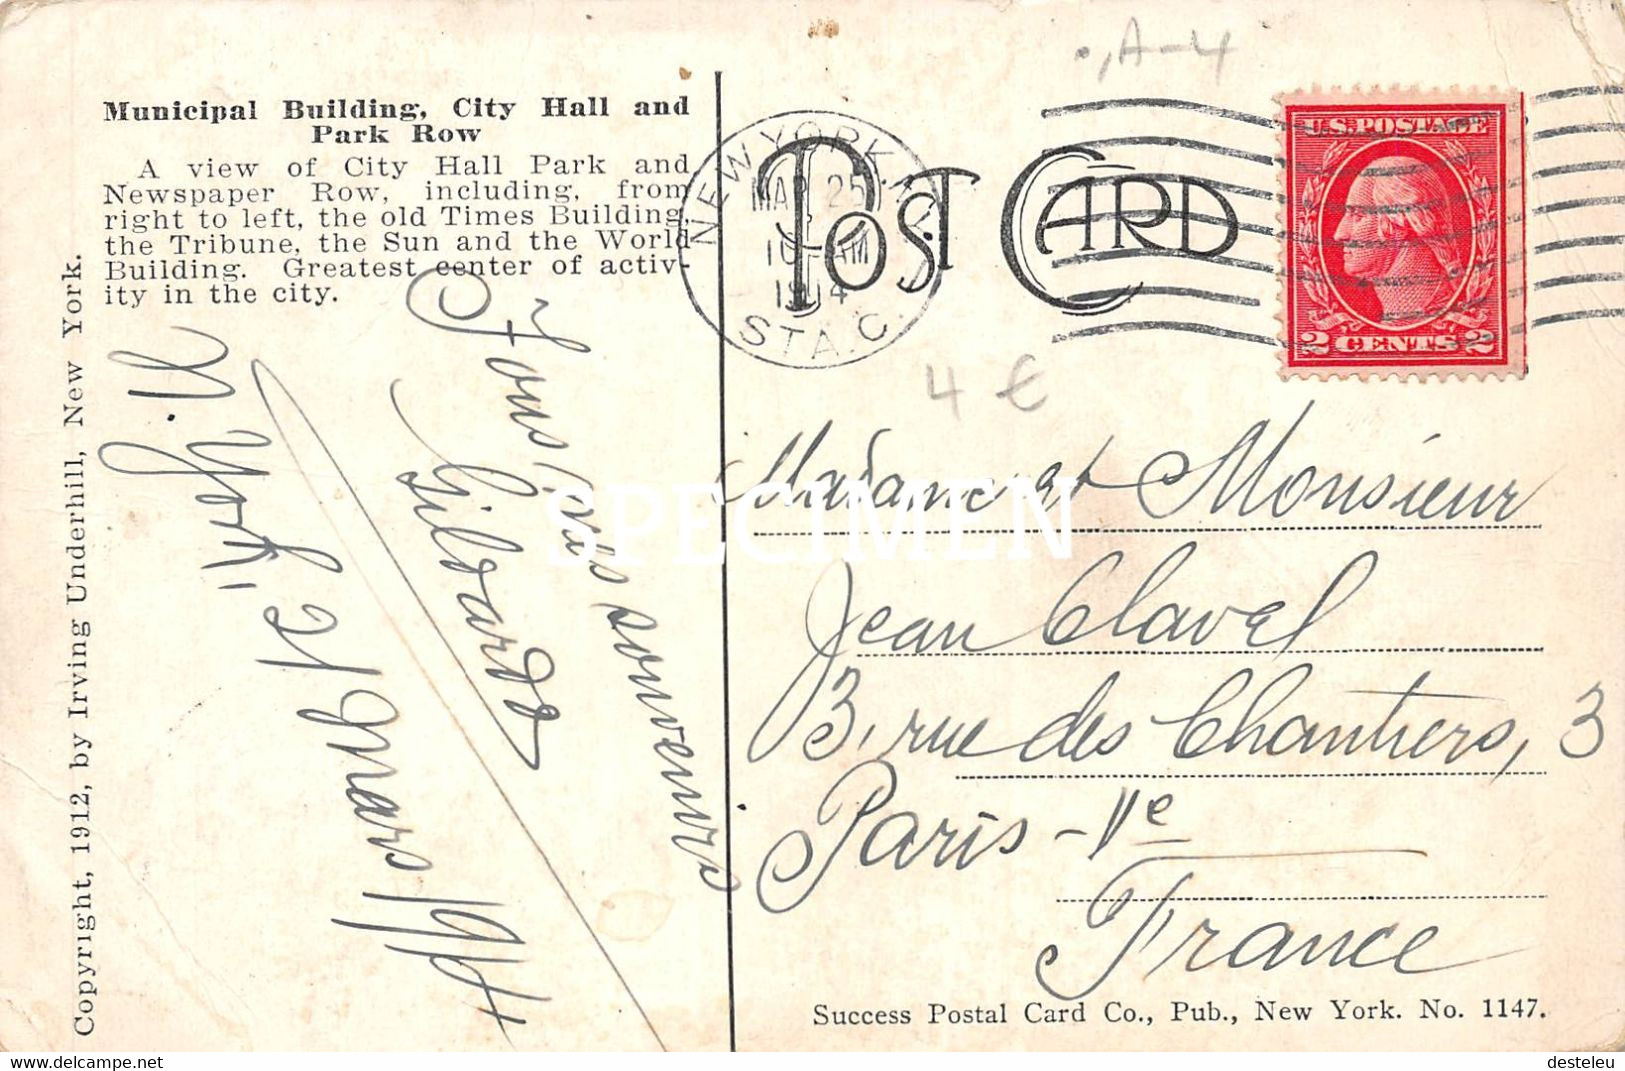 ., A-4
Municipal Building, City Hall and
Park Row
A view of City Hall Park and
Newspaper Row, including, from
right to left, the old Times Building,
the Tribune, the Sun and the World
Building. Greatest center of activ-
ity in the city.
Copyright, 1912, by Irving Underhill, New York.
N. York
le 24 mars 1914
Gilbardo
souvenirs
NEW YORK, N.Y.
MAR 25
10-AM
1914
STA. C.
POST CARD
U.S. POSTAGE
2 CENTS 2
4 €
Madame et Monsieur
Jean Clavel
3, rue des Chantiers, 3
Paris - Ve
France
Success Postal Card Co., Pub., New York. No. 1147.
SPECIMEN
delcampe.net
desteleu